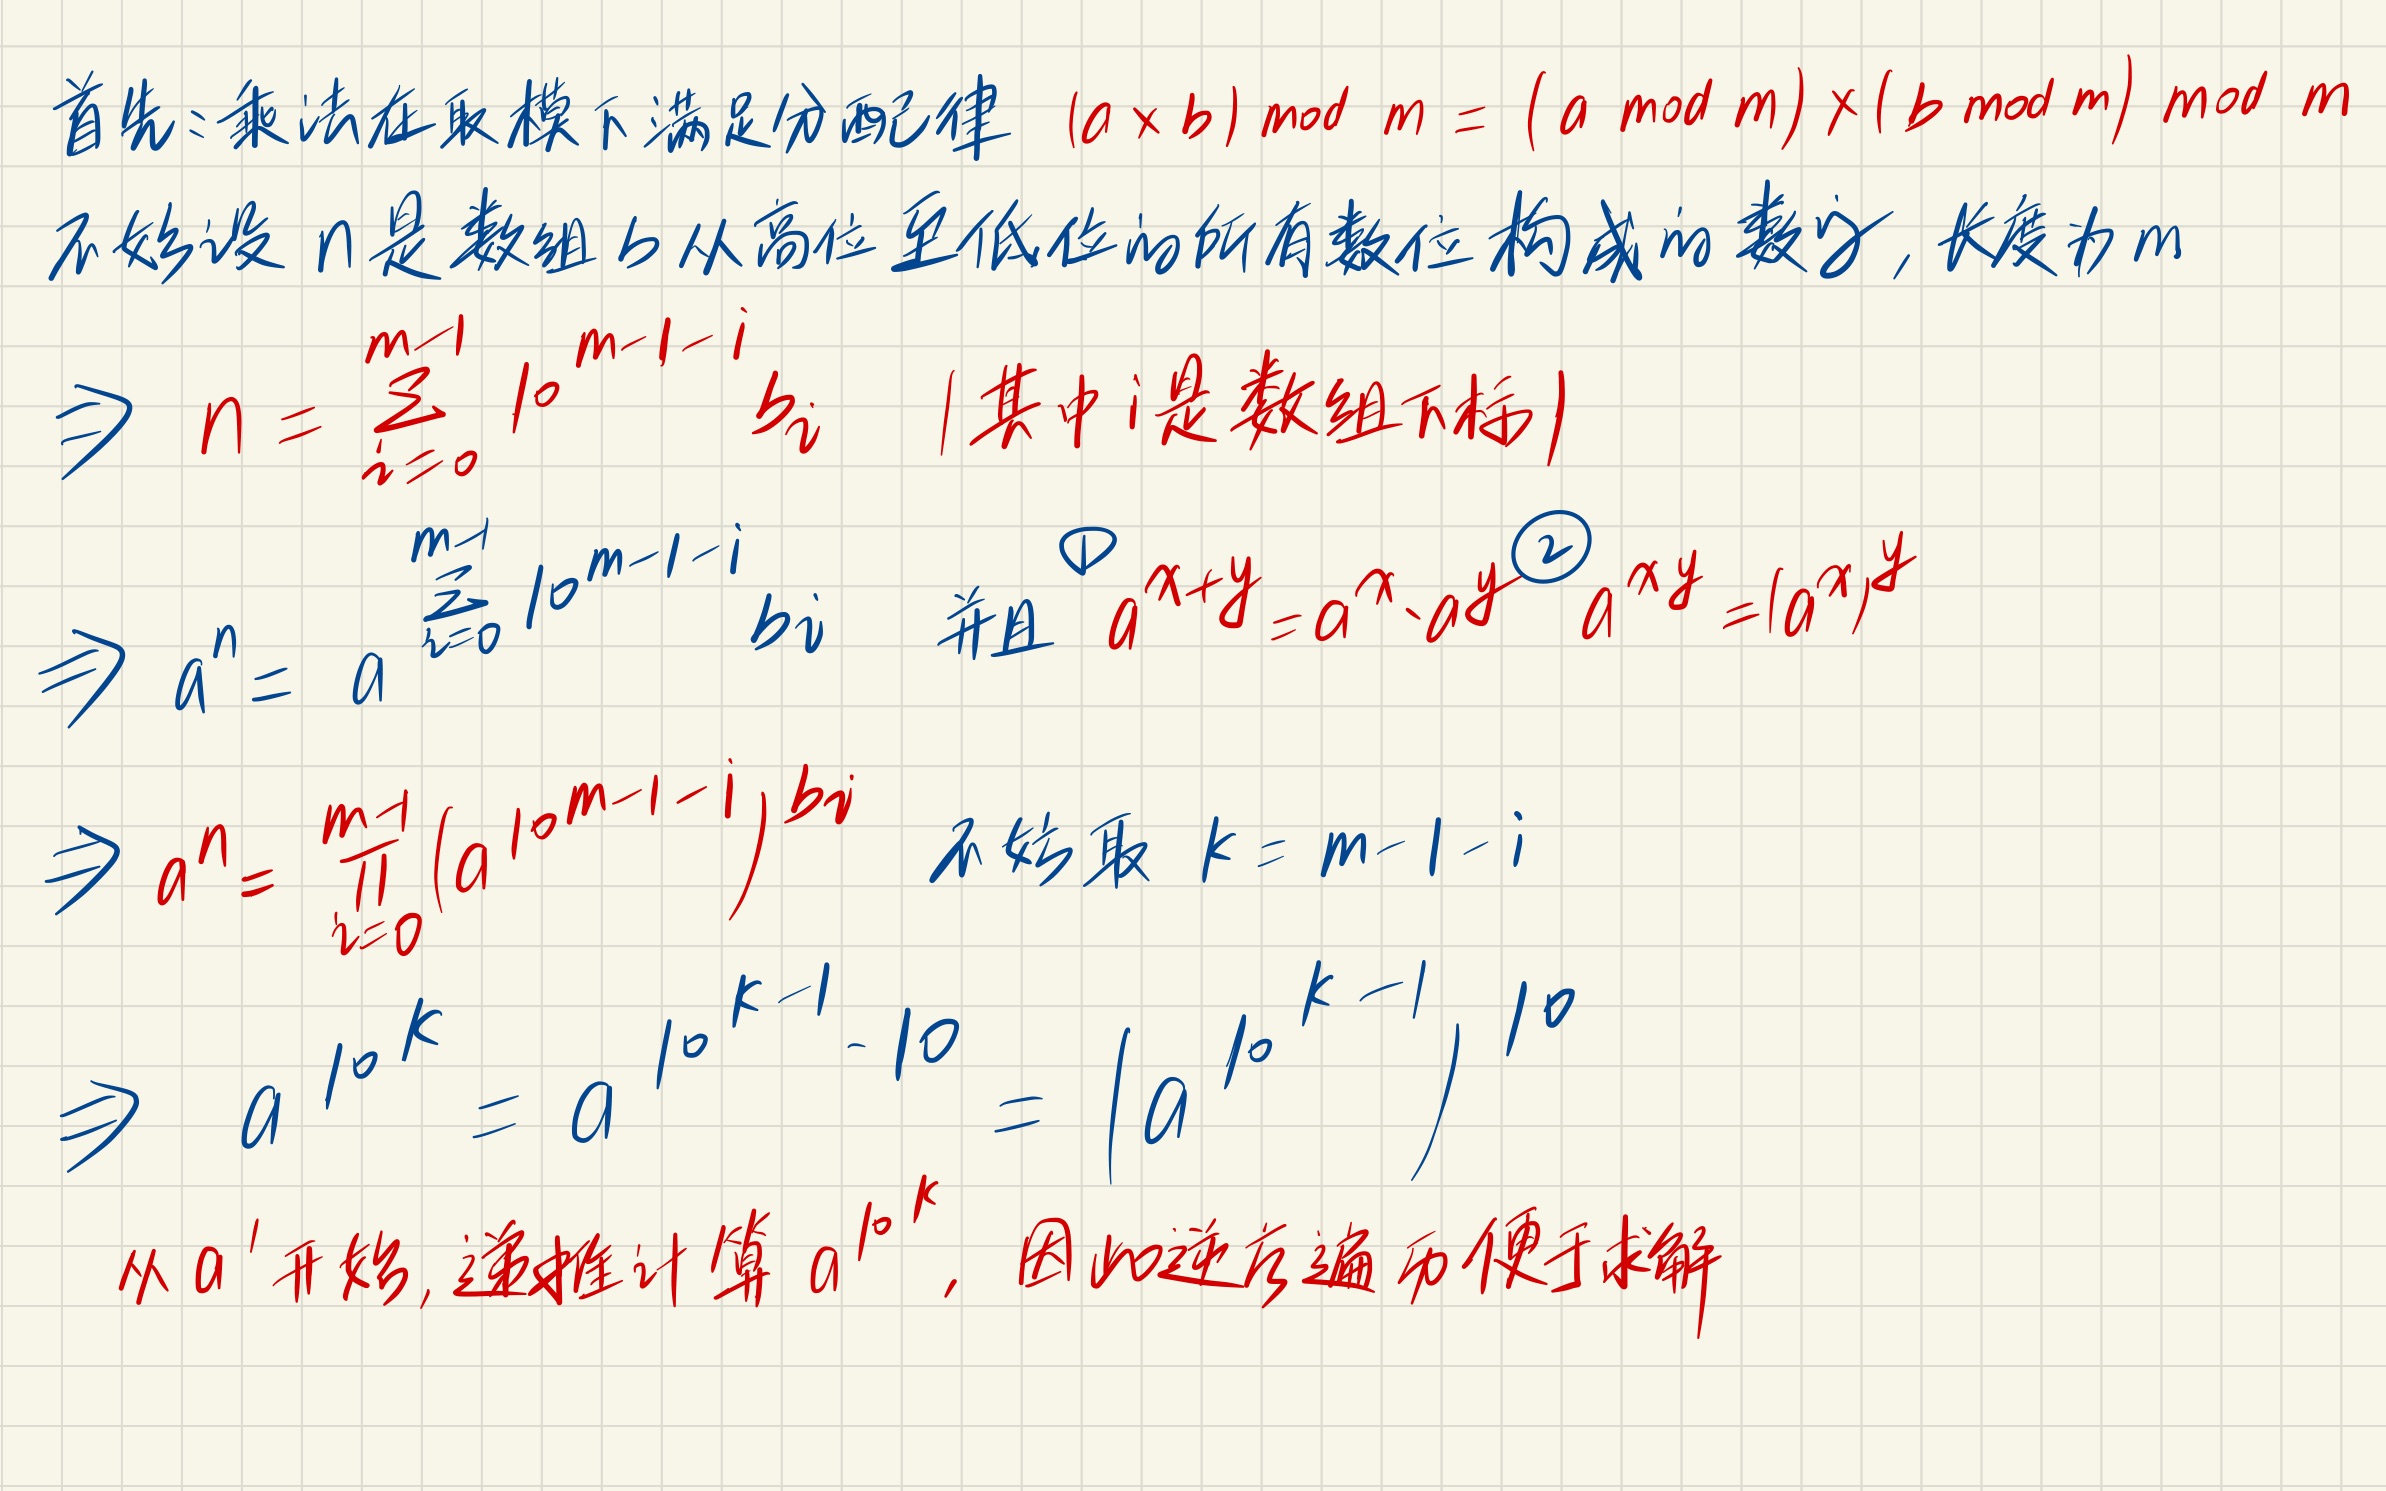 首先:乘法在取模下满足分配律 (a × b) mod m = (a mod m) × (b mod m) mod m
不妨设 n是数组b从高位至低位的所有数位构成的数字,长度为m
⇒ n = \sum_{i=0}^{m-1} 10^{m-1-i} b_i (其中i是数组下标)
⇒ a^n = a^{\sum_{i=0}^{m-1} 10^{m-1-i} b_i} 并且 ① a^{x+y} = a^x · a^y ② a^{xy} = (a^x)^y
⇒ a^n = \prod_{i=0}^{m-1} (a^{10^{m-1-i}})^{b_i} 不妨取 k = m-1-i
⇒ a^{10^k} = a^{10^{k-1} · 10} = (a^{10^{k-1}})^{10}
从a^1开始,递推计算 a^{10^k}, 因此逆序遍历便于求解